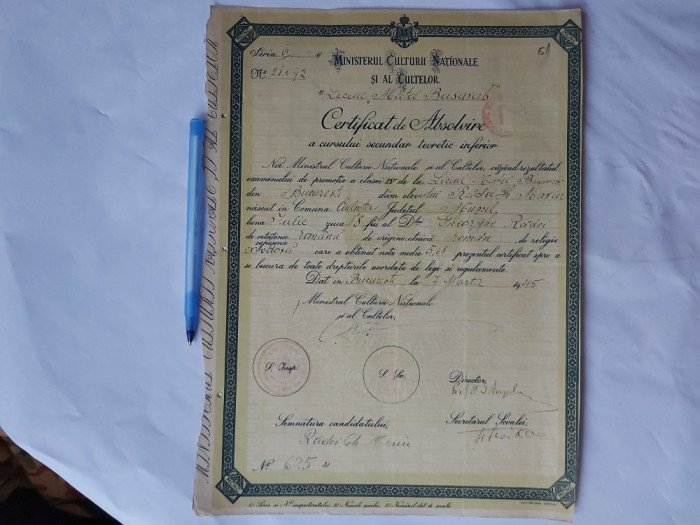 Seria
No 21.092
51
MINISTERUL CULTURII NAȚIONALE
ȘI AL CULTELOR
Liceul Matei Basarab
Certificat de Absolvire
a cursului secundar teoretic inferior
Noi Ministrul Culturii Naționale și al Cultelor, văzând rezultatul
examenului de promoție a clasei IV de la Liceul Matei Basarab
din București dăm elevului Radu Gh Marin
născut în Comuna Județul
luna Iulie ziua 13 fiu al Dlui Gheorghe Radu
de cetățenie Română de origine etnică român de religie
ortodoxă care a obținut nota medie 5,68 prezentul certificat spre a
se bucura de toate drepturile acordate de legi și regulamente.
Dat în București la 7 Martie 1945
Ministrul Culturii Naționale
și al Cultelor,
S. Insp.
S. Șc.
Director,
Semnătura candidatului,
Radu Gh. Marin
Secretarul Școalei,
No 625